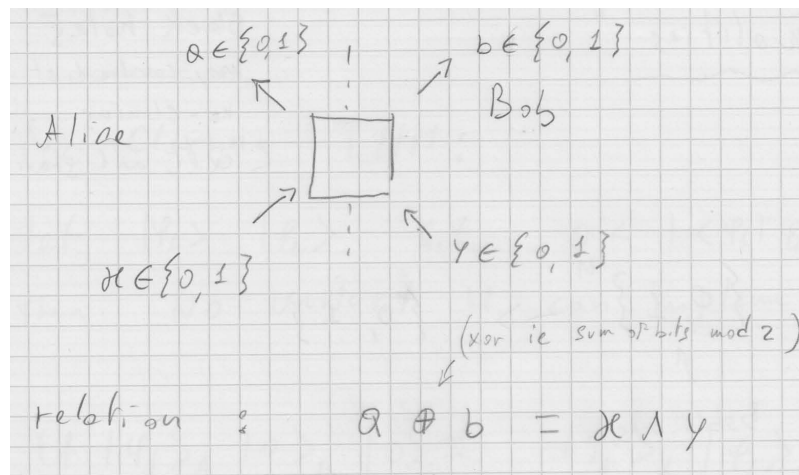 a ∈ {0,1} b ∈ {0, 1}
Bob
Alice
x ∈ {0, 1} y ∈ {0, 1}
(xor ie sum of bits mod 2)
relation : a ⊕ b = x ∧ y